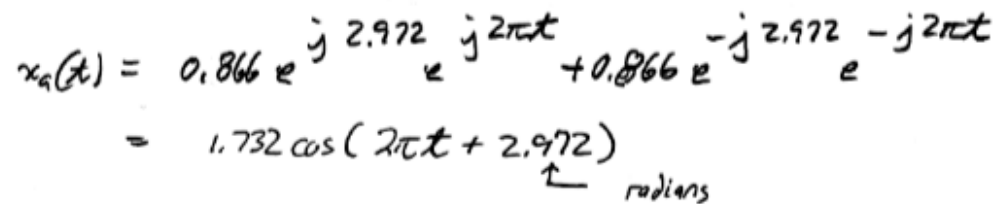 xₐ(t) = 0.866 e^{j 2.972} e^{j2πt} + 0.866 e^{-j 2.972} e^{-j2πt}
= 1.732 cos(2πt + 2.972)
↑ radians